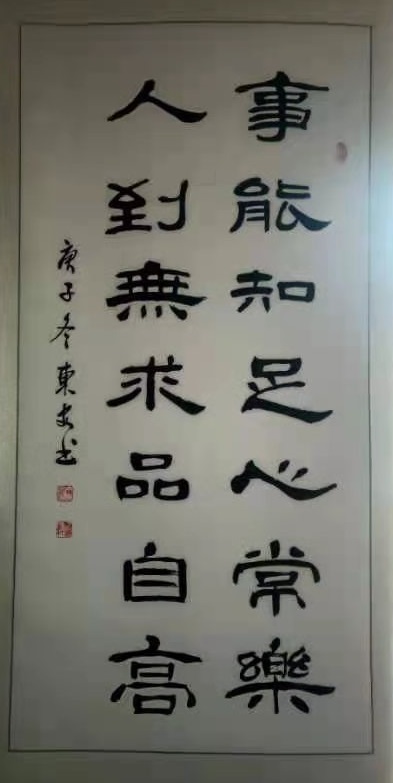 事能知足心常樂
人到無求品自高
庚子冬東安书